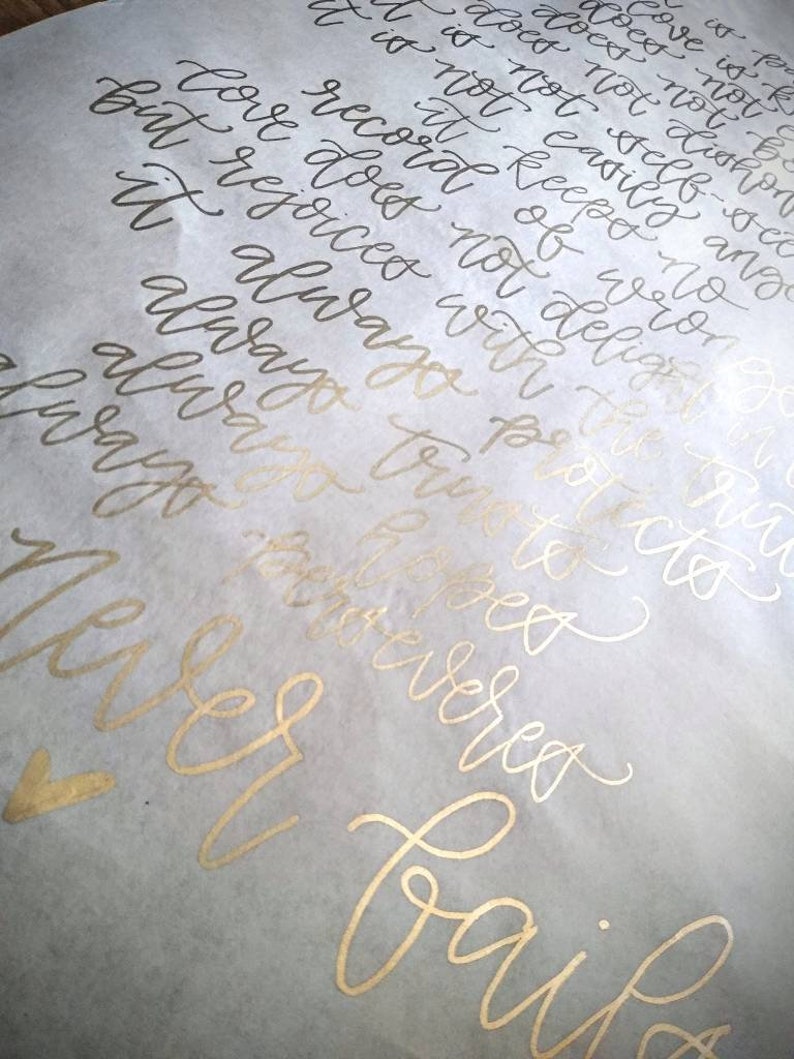 is
love is
does not
does not
does not dishon
it is not self-see
it is not easily ange
it keeps no
record of wrongs
love does not delight in
but rejoices with the trut
it always protects
always trusts
always hopes
always perseveres
Never fails